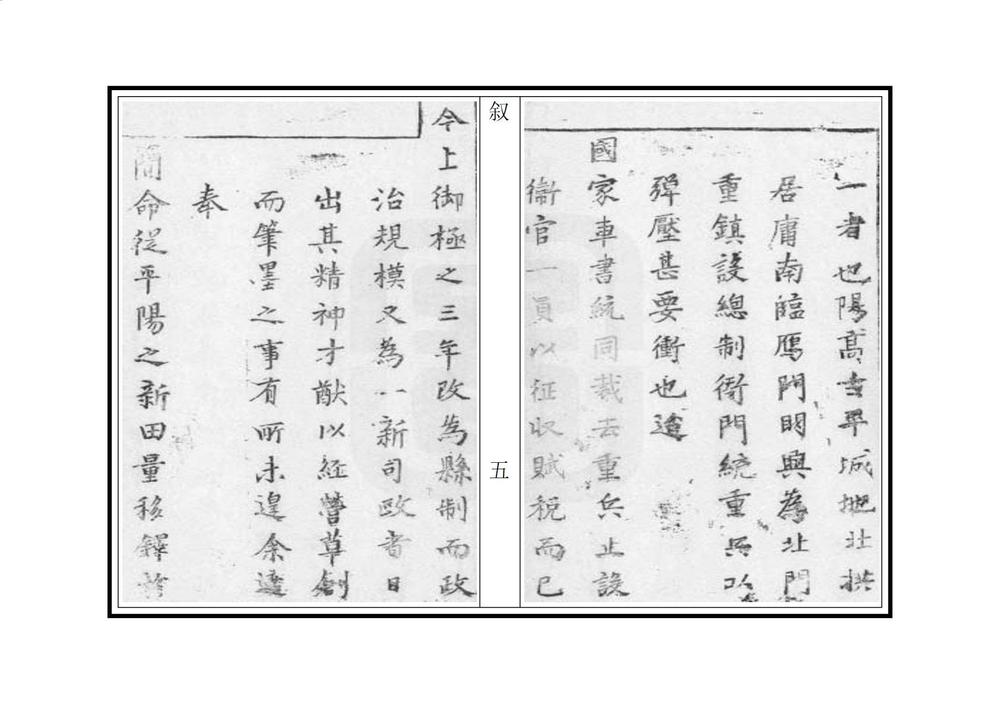 一者也陽高古平城地北拱
居庸南臨鴈門明興為北門
重鎮設總制衙門統重兵以
彈壓甚要衝也逮
國家車書統同裁去重兵止設
衞官一員以征收賦稅而已
叙
五
今上御極之三年改為縣制而政
治規模又為一新司政者日
出其精神才猷以經營草創
而筆墨之事有所未遑余遠
奉
簡命從平陽之新田量移鐸於